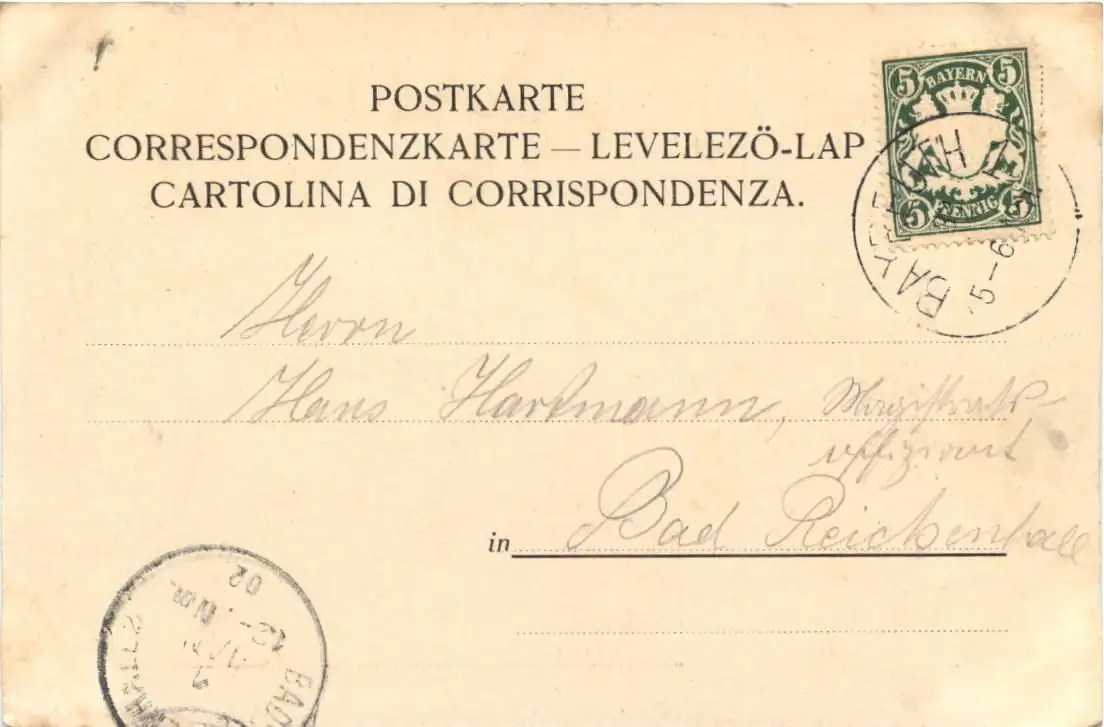 POSTKARTE
CORRESPONDENZKARTE — LEVELEZÖ-LAP
CARTOLINA DI CORRISPONDENZA.
5 BAYERN 5
5 PFENNIG 5
BAYREUTH
5-6
Herrn
Hans Hartmann, Magistrats-
offiziant
in Bad Reichenhall
BAD
1
JAN
12-
Nm.
02